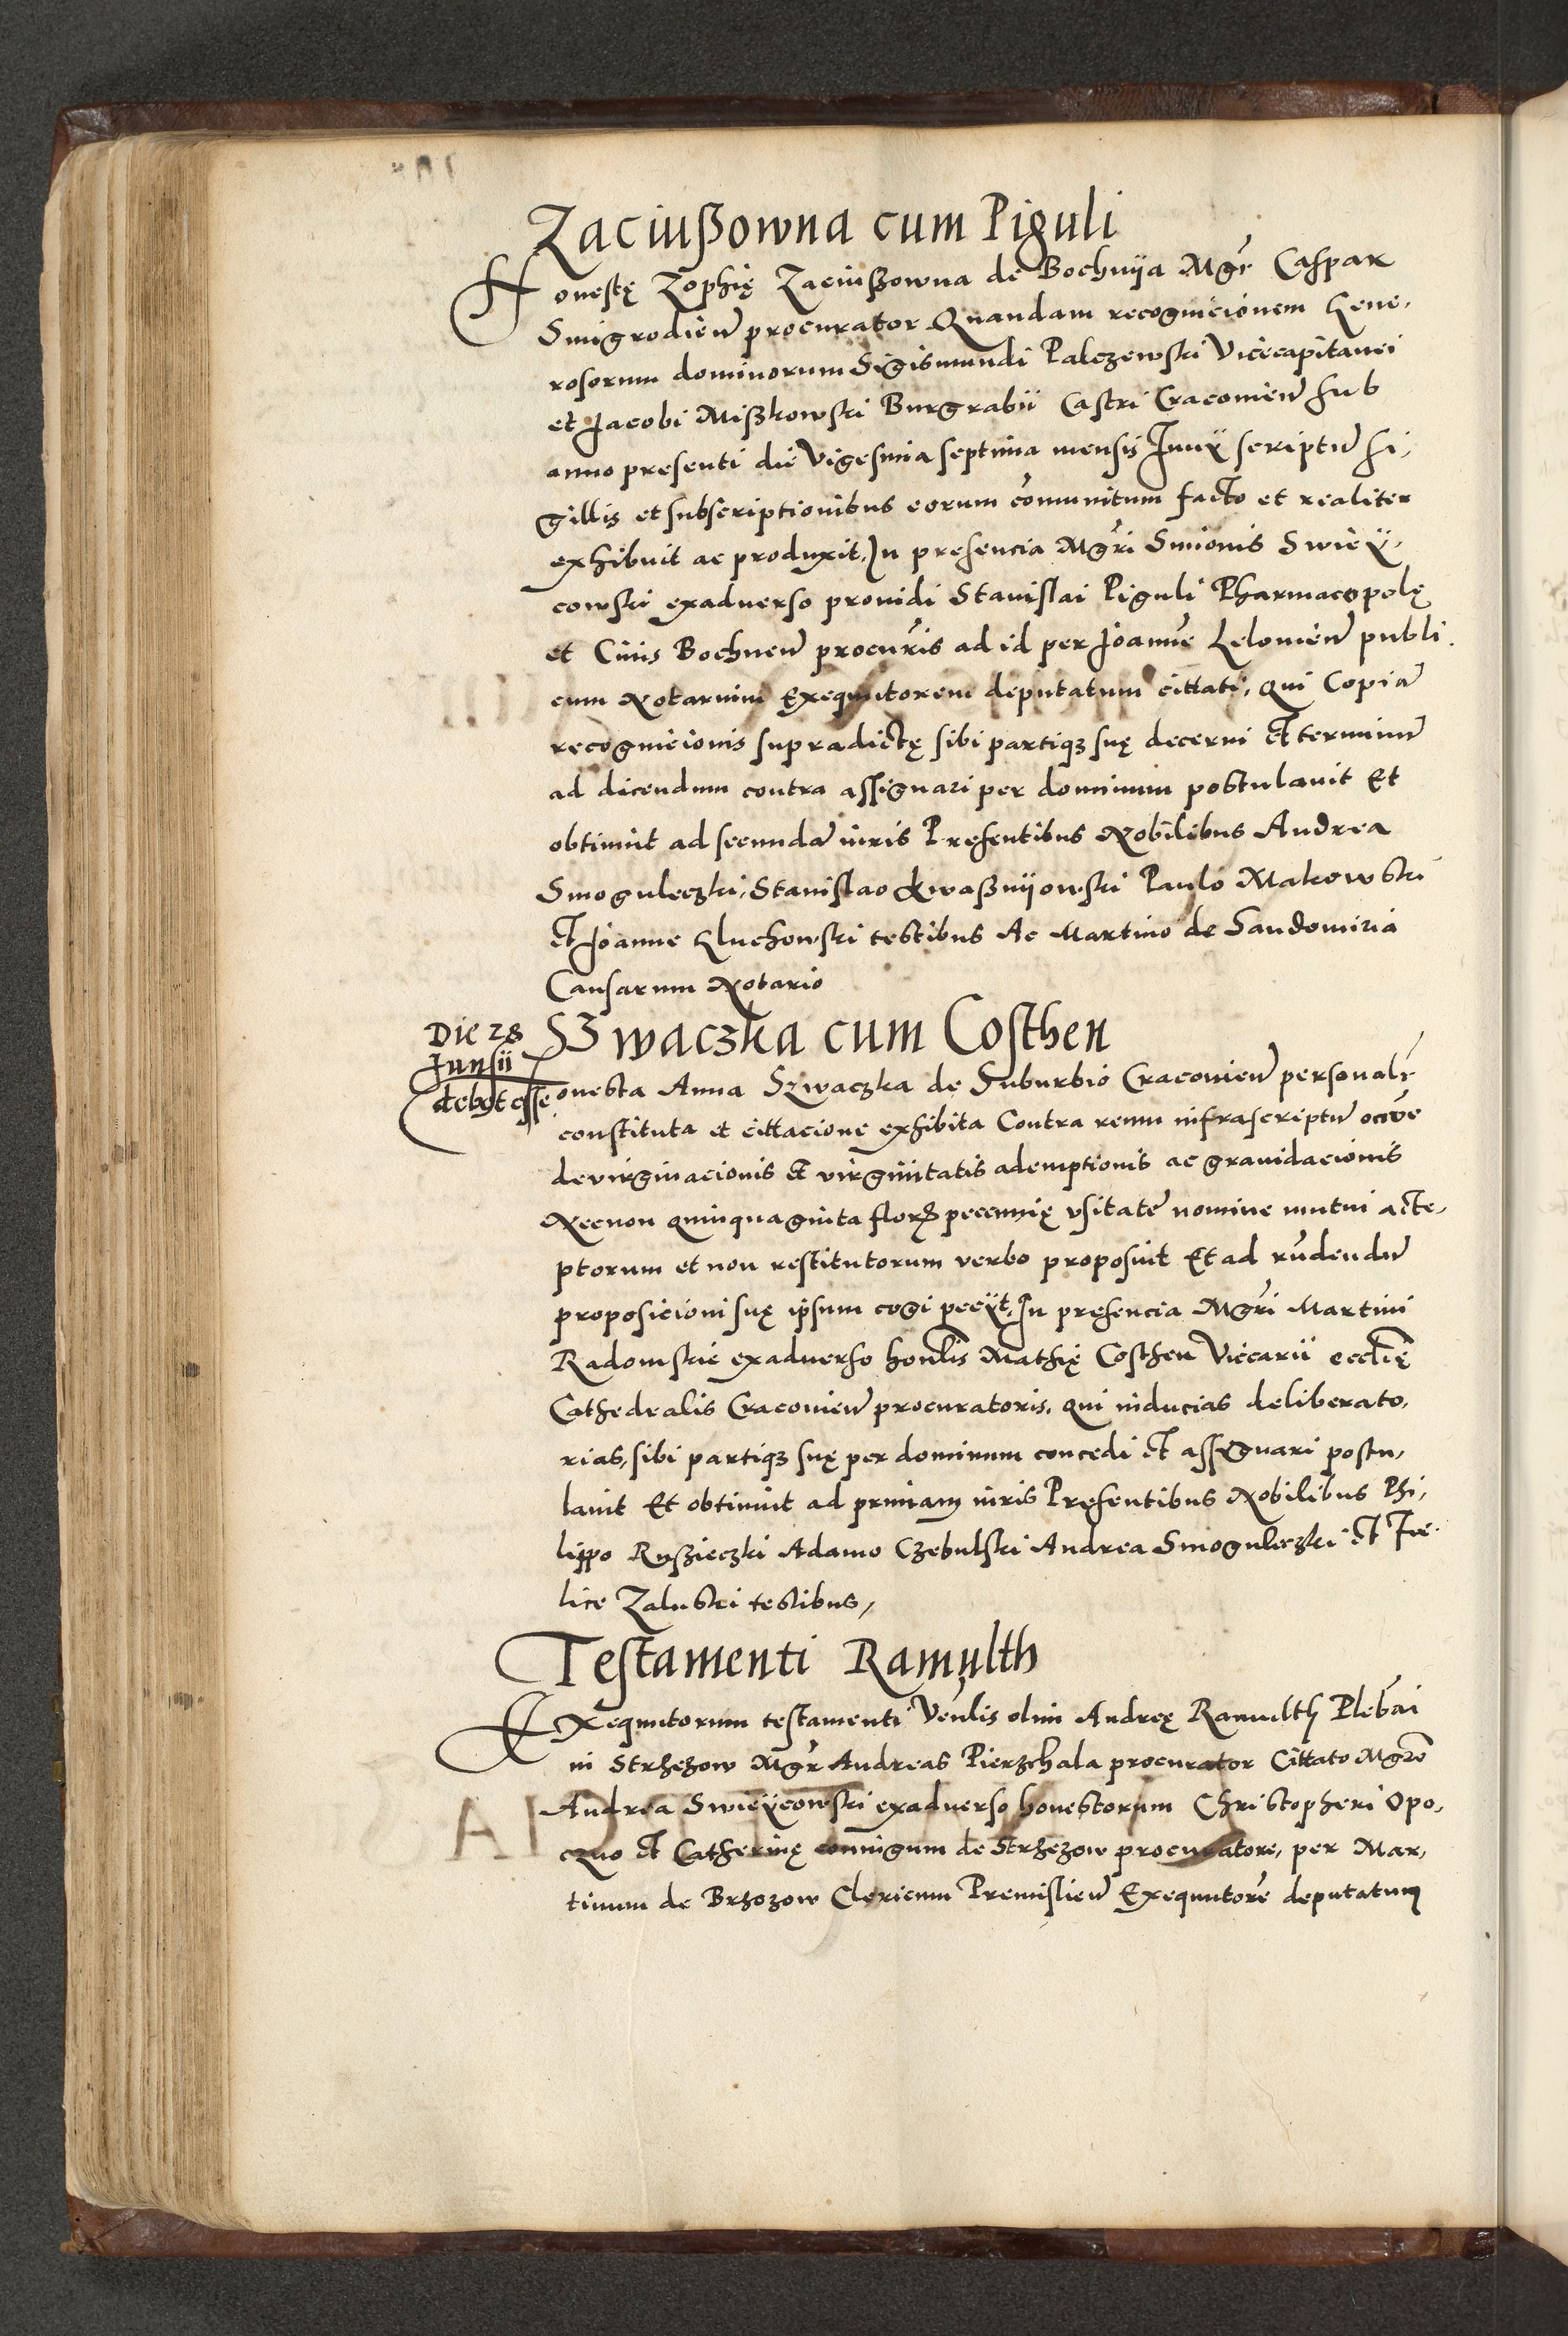 Zaciußowna cum Piguli
Honestę Zophię Zaciußowna de Bochnÿa Mgr̄ Caspar
Smigrodien̄ procurator Quandam recognicionem Gene-
rosorum dominorum Sigismundi Palczewski Vicecapitanei
et Jacobi Mißkowski Burgrabii Castri Cracovien̄ sub
anno presenti die Vigesima septima mensis Junÿ scriptū si-
gillis et subscriptionibus eorum cōmunitum facto et realiter
exhibuit ac produxit, In presencia Mgr̄i Simonis Swieÿ-
cowski exadverso providi Stanislai Piguli Pharmacopolę
et Civis Bochnen̄ procur̄is ad id per Joannē Lelovien̄ publi
cum Notarium Exequutorem deputatum cittati, qui Copiā
recognicionis supradictę sibi partiqꝫ suę decerni et terminū
ad dicendum contra assignari per dominum postulavit Et
obtinuit ad secundā iuris Presentibus Nobilibus Andrea
Smoguleczki, Stanislao Kwaßnÿowski Paulo Makowski
et Joanne Gluchowski testibus Ac Martino de Sandomiria
Causarum Notario
Die 28
Junii
debet esse
Szwaczka cum Costhen
Honesta Anna Szwaczka de Suburbio Cracovien̄ personalr̄
constituta et cittacione exhibita Contra reum infrascriptū occōe
devirginacionis et virginitatis ademptionis ac gravidacionis
Necnon quinquaginta florꝝ pecunię usitatę nomine mutui acce-
ptorum et non restitutorum verbo proposuit Et ad r̄ndendū
proposicioni suę ipsum cogi peciÿt, In presencia Mgr̄i Martini
Radomskie exadverso honlis Mathię Costhen Viccarii ecclię
Cathedralis Cracovien̄ procuratoris, qui inducias deliberato-
rias, sibi partiqꝫ suę per dominum concedi et assignari postu-
lavit Et obtinuit ad primam iuris Presentibus Nobilibus Phi-
lippo Rußieczki Adamo Czebulski Andrea Smoguleczki et Foe-
lice Zaluski testibus,
Testamenti Ramulth
Exequutorum testamenti Venlis olim Andreę Ramulth Plebāi
in Strzezow Mgr̄ Andreas Pierzchala procurator Cittato Mgr̄o
Andrea Swieÿcowski exadverso honestorum Christopheri Opo-
czno et Catherinę coniugum de Strzezow procuratore, per Mar-
tinum de Brzozow Clericum Premislien̄ Exequutorē deputatum